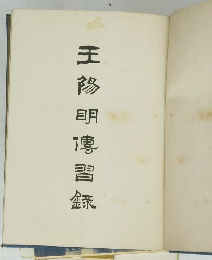 王陽明傳習錄